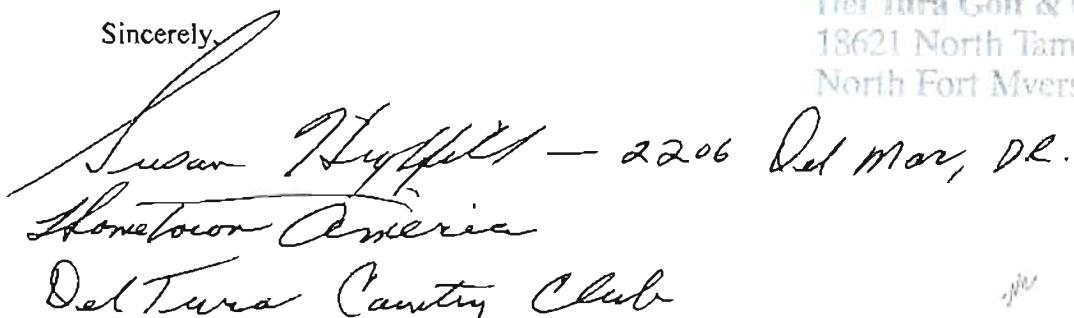 Sincerely,
Del Tura Golf &
18621 North Tam
North Fort Myers
Susan — 2206 Del Mar, DR.
Hometown America
Del Tura Country Club